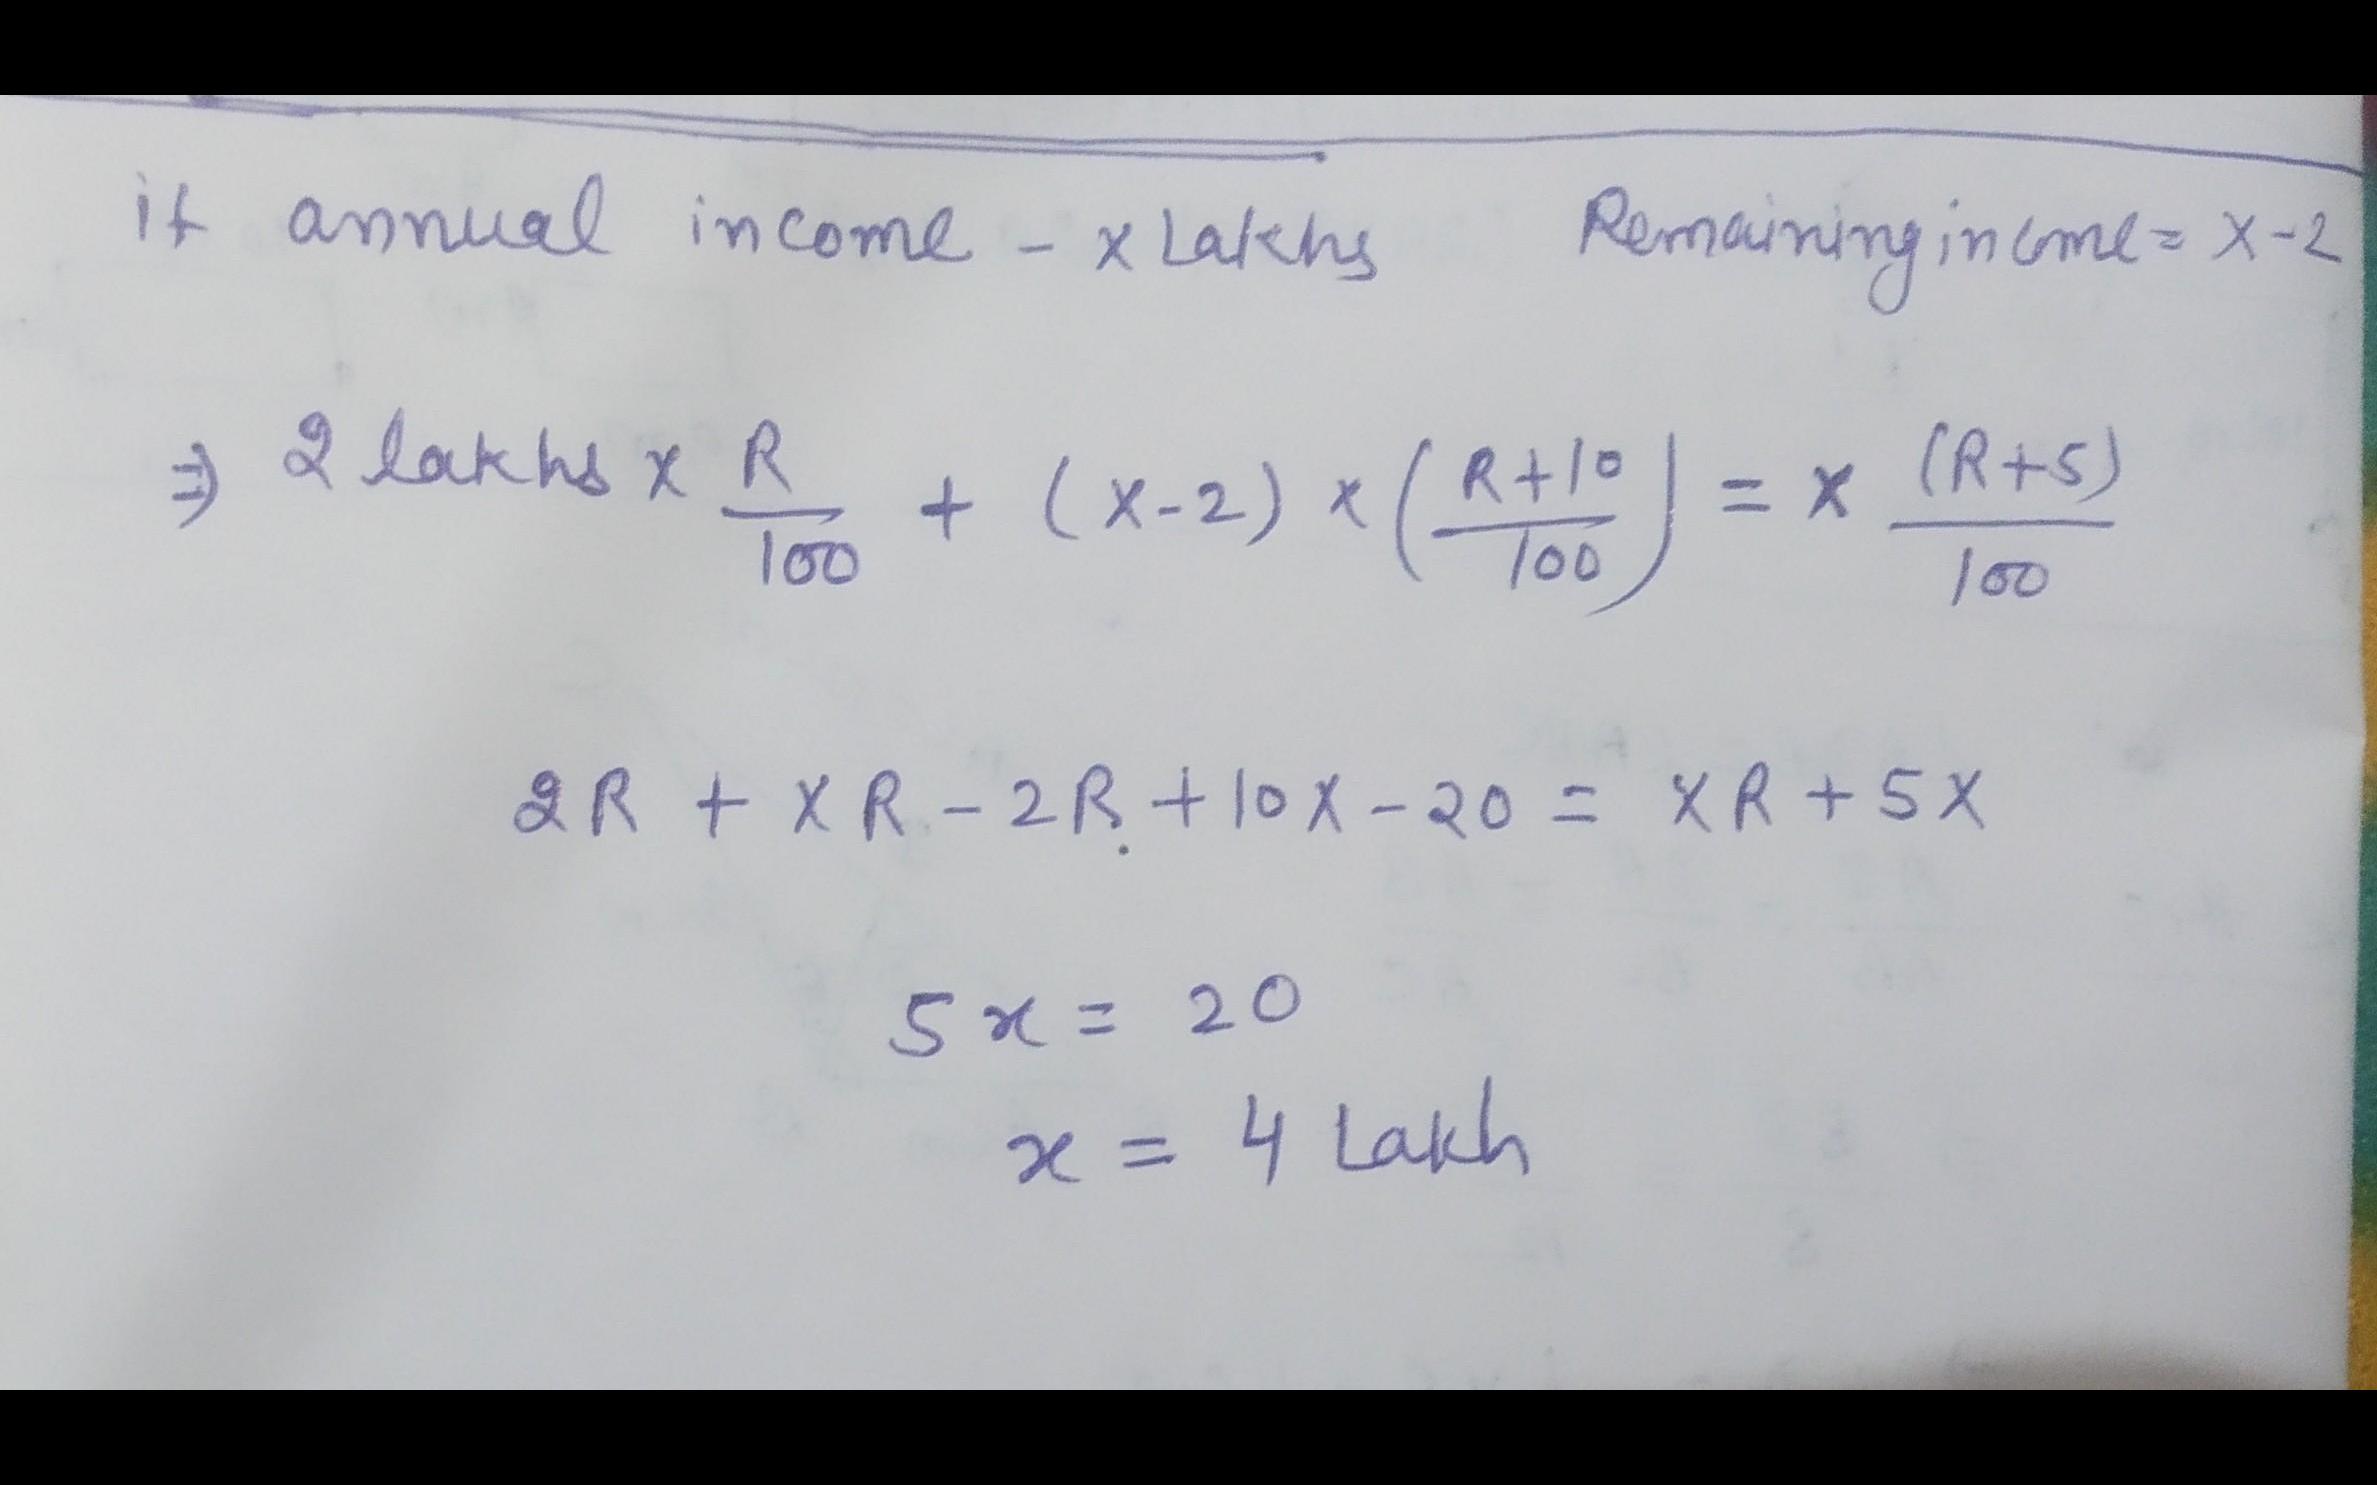 if annual income - x Lakhs Remaining income = x-2
⇒ 2 lakhs x R/100 + (x-2) x (R+10/100) = x (R+5)/100
2R + xR - 2R + 10x - 20 = xR + 5x
5x = 20
x = 4 Lakh